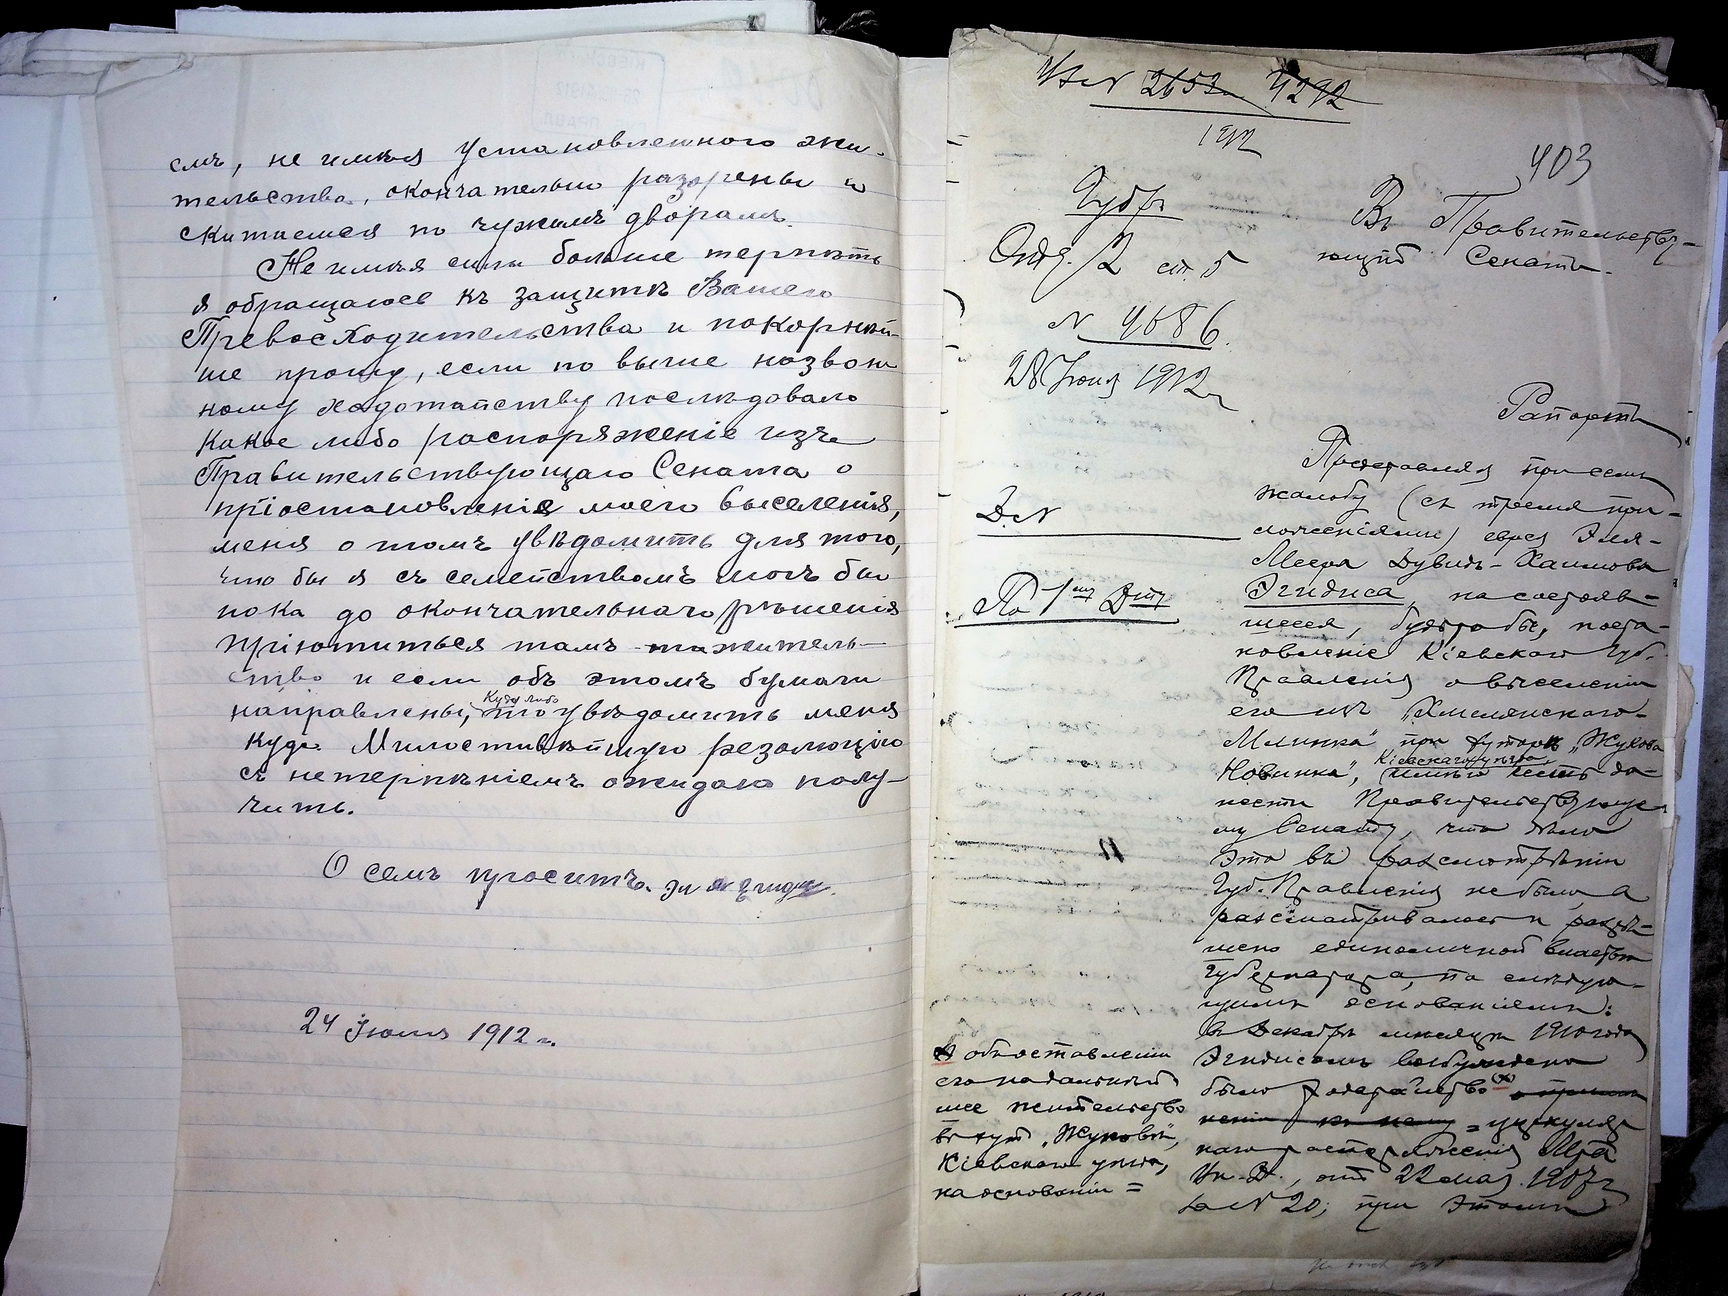 емъ, не имѣя установленного жи-
тельства, окончательно разорены и
скитаемся по чужимъ дворамъ.
Не имѣя силы больше терпѣть
я обращаюсь къ защитѣ Вашего
Превосходительства и покорнѣй-
ше прошу, если по выше назван
ному ходотайству последовало
какое либо распоряженіе изъ
Правительствующаго Сената о
пріостановленіе моего выселенія,
меня о томъ увѣдомить для того,
что бы я съ семействомъ могъ бы
пока до окончательнаго рѣшенія
пріютиться тамъ на житель-
ство и если объ этомъ бумаги
куда либо
направлены, то увѣдомить меня
куда. Милостивѣйшую резолюцію
съ нетерпѣніемъ ожидаю полу-
чить.
О семъ проситъ
24 Іюля 1912 г.
2653 4292
1912
403
Губ.
Отд. 2 ст. 5
N 4686.
28 Іюля 1912 г.
Въ Правительству-
ющій Сенатъ.
Рапортъ
Д. N
По 1му Д-ту
Представляя при семъ
жалобу (съ тремя при-
ложеніями) еврея Эля-
Меера Дувидъ-Хаимова
Эгидиса, на состояв-
шееся, будто бы, поста-
новленіе Кіевскаго Губ.
Правленія о выселеніи
его изъ "Хмелянскаго
Млинка" при хуторѣ "Жукова
Кіевскаго уѣзда
Новинка", имѣю честь до-
нести Правительствующе
му Сенату, что дѣло
это въ разсмотрѣніи
Губ. Правленія не было, а
разсматривалось и разрѣ-
шено единоличной властью
Губернатора, по слѣдую-
щимъ основаніямъ:
въ Декабрѣ мѣсяцѣ 1910 года
Эгидисомъ возбуждено
было ходатайство (х) о примѣ
неніи къ нему циркуляр
наго распоряженія М-ра
Вн. Д., отъ 22 мая 1907 г.
за N 20; при этомъ
х) объ оставленіи
его на дальнѣй
шее жительство
въ хут. "Жуковъ",
Кіевскаго уѣзда,
на основаніи =